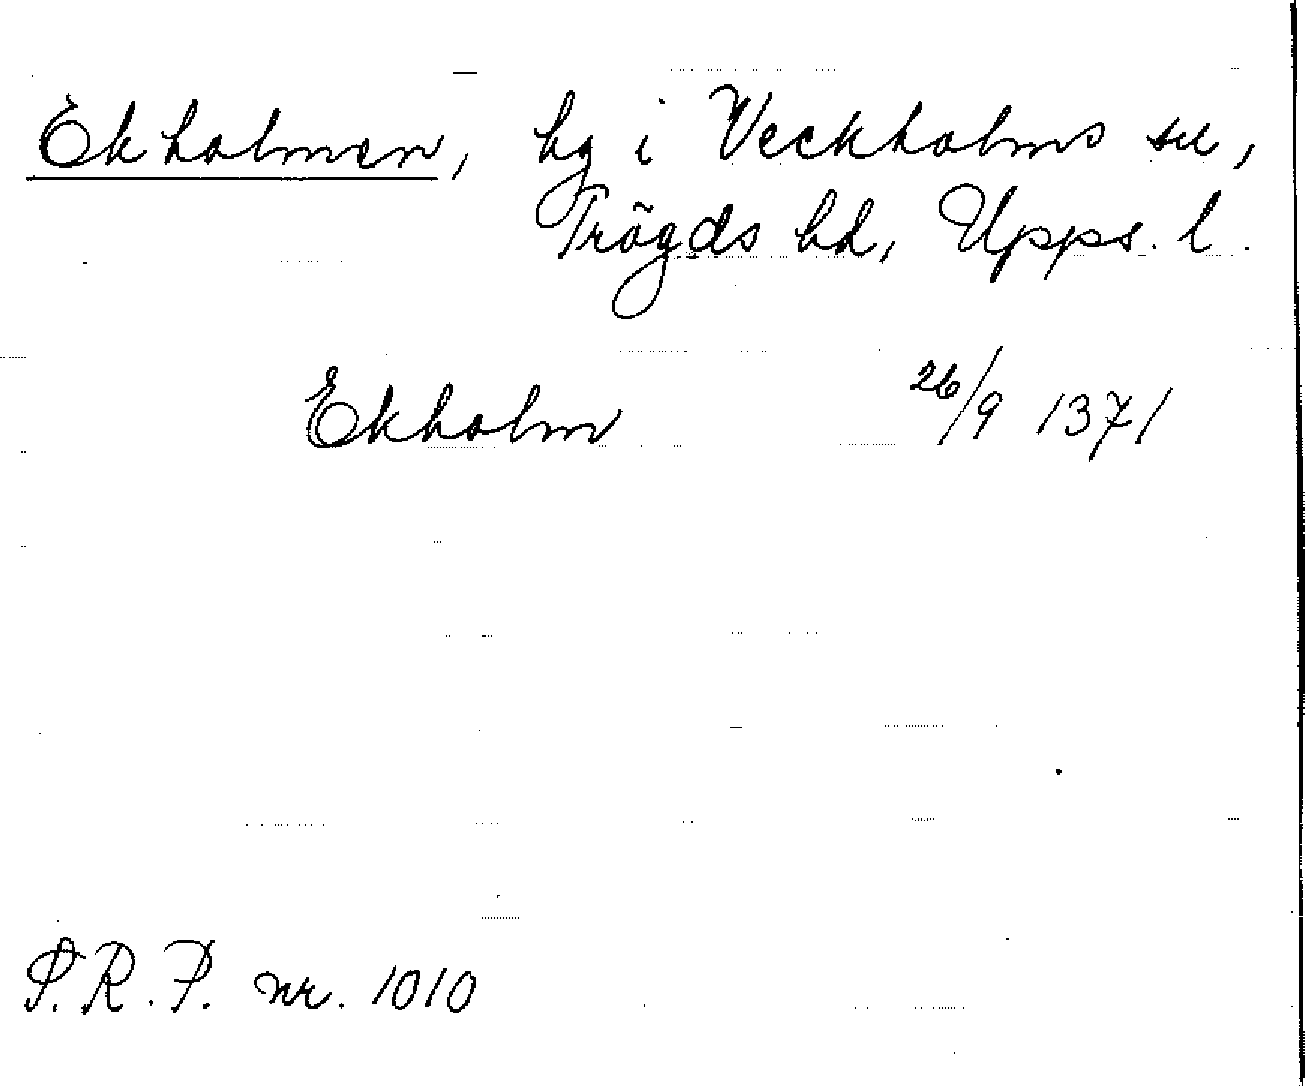 Ekholmen, hg i Veckholms sn,
Trögds hd, Upps. l.
Ekholm 26/9 1371
S.R.P. nr. 1010